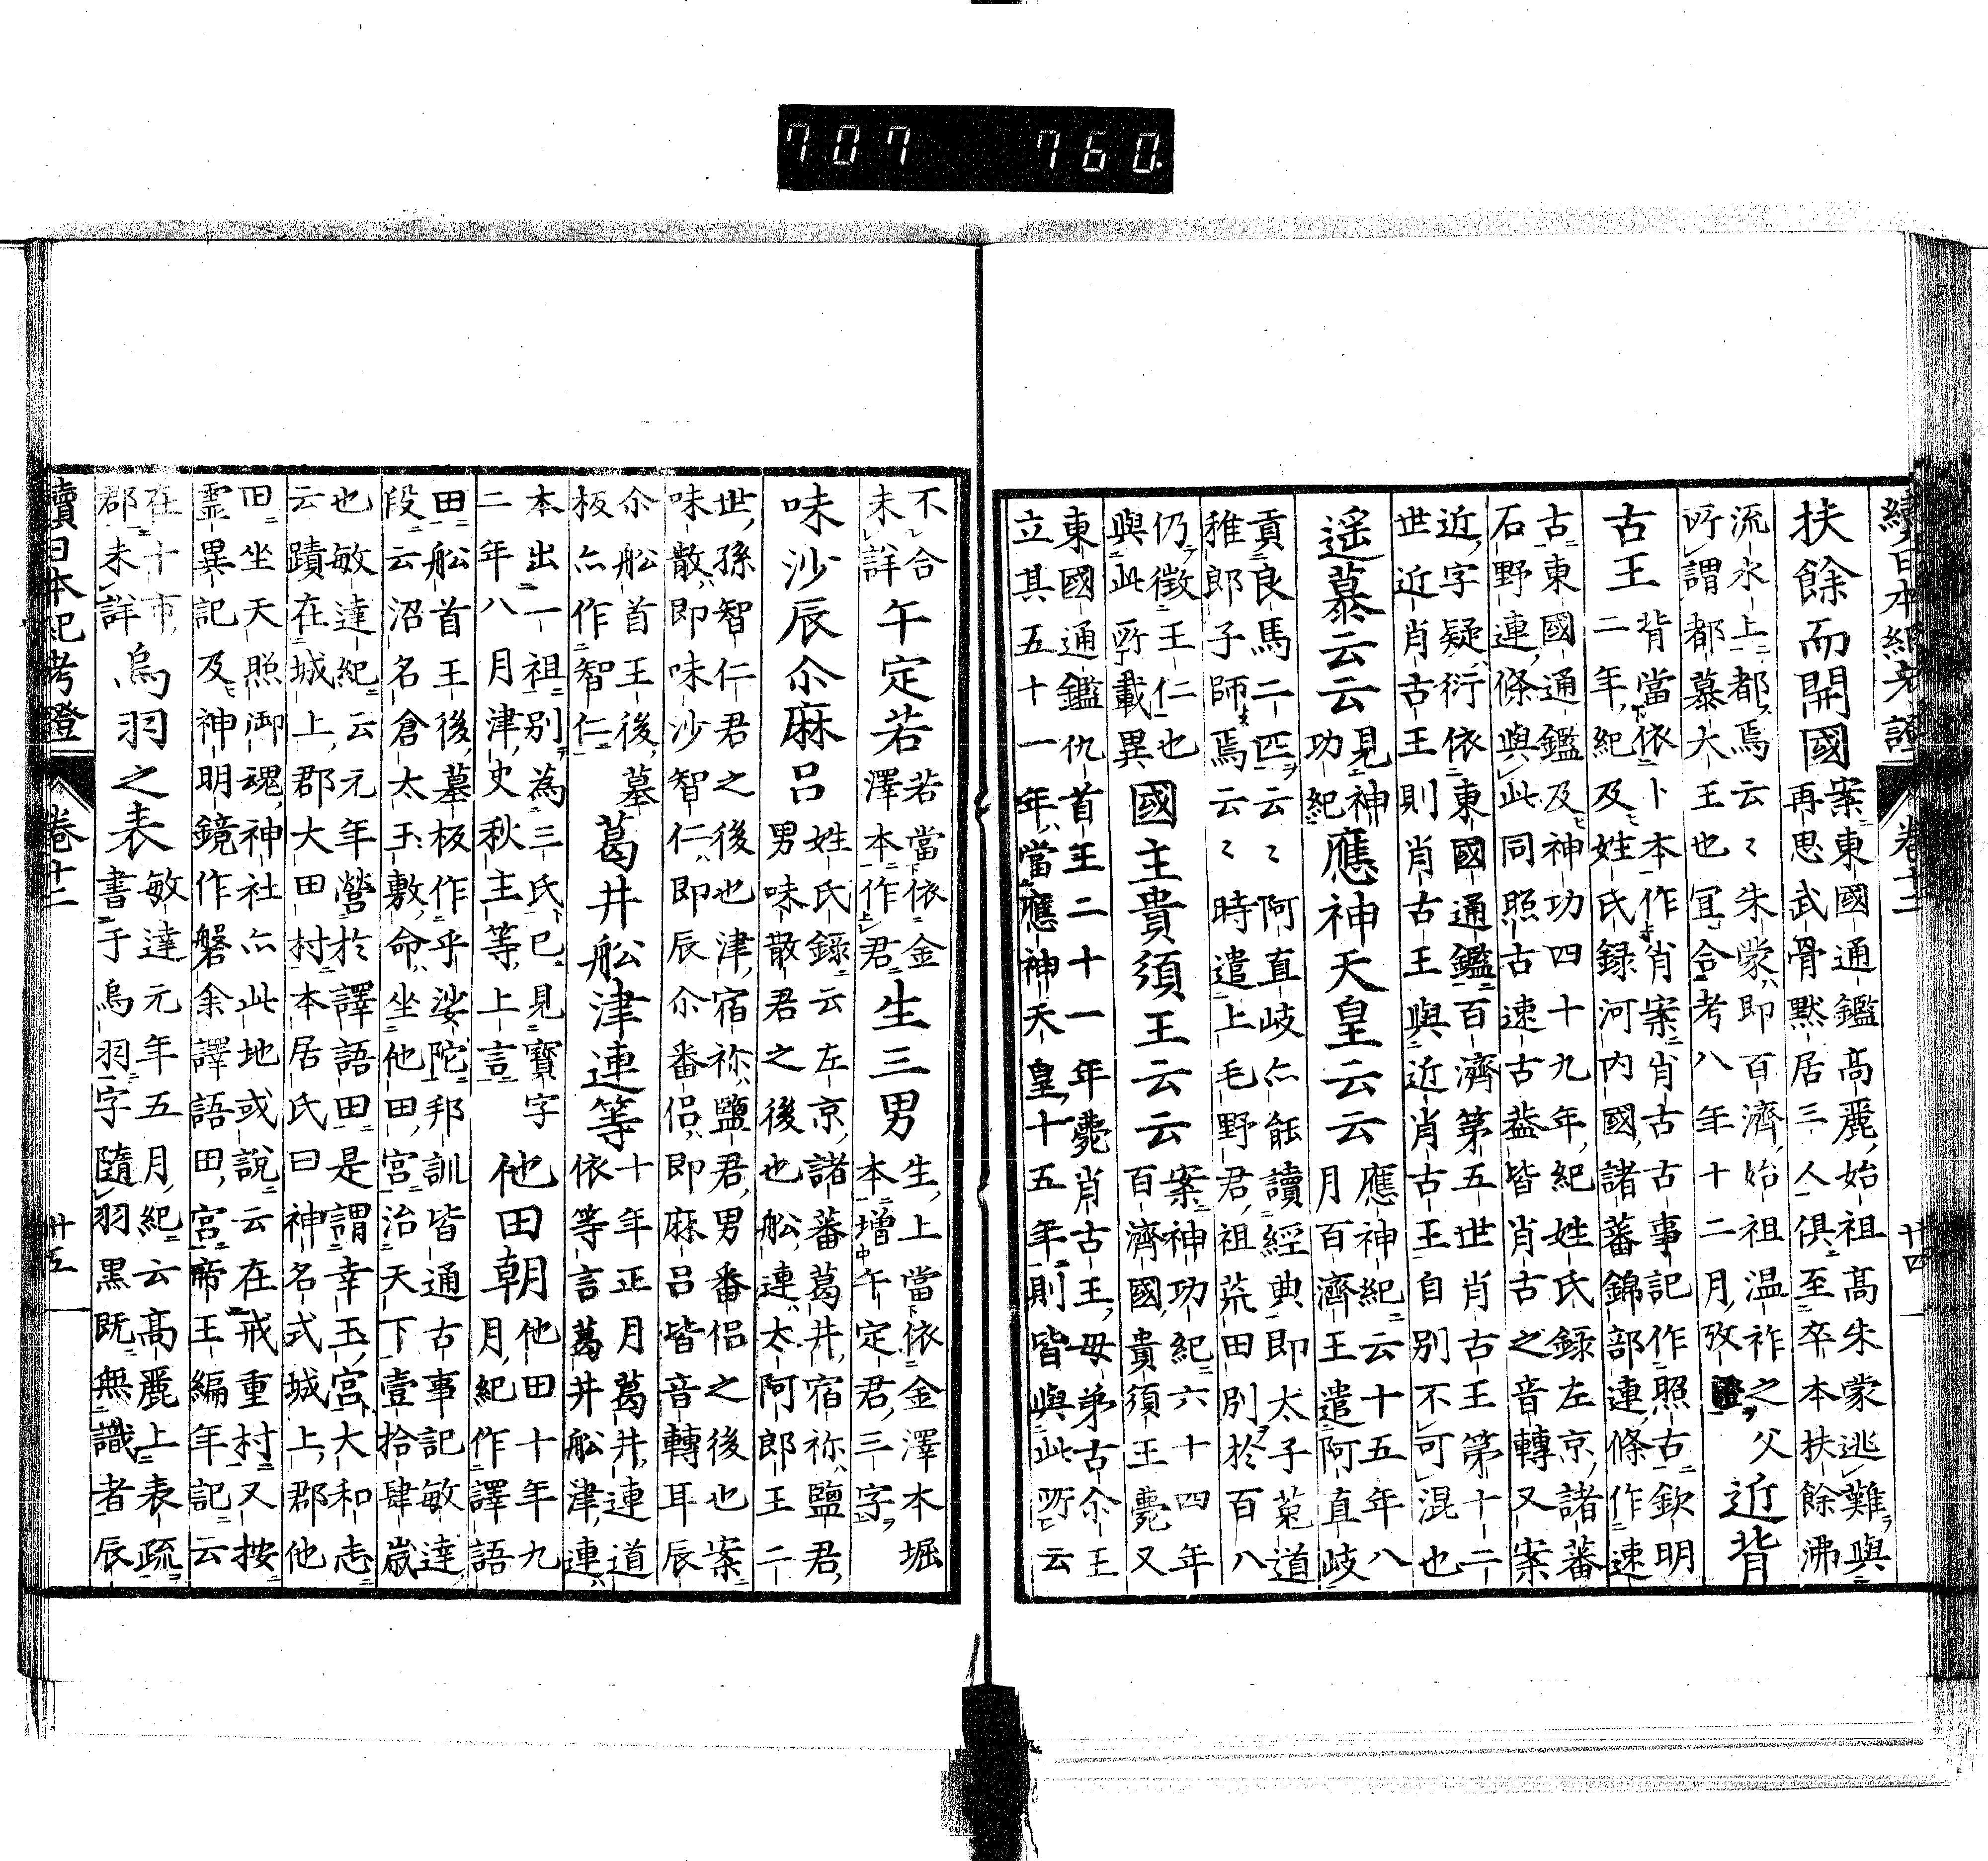 707 760.
續日本紀考證 卷十二 廿四
扶餘而開國
案東國通鑑高麗始祖高朱蒙逃難與
再思武骨默居三人俱至卒本扶餘沸
流水上都焉云〻朱蒙即百濟始祖温祚之父
所謂都慕大王也冝合考八年十二月攷證
近背
古王
背當依卜本作肖案肖古古事記作照古欽明
二年紀及姓氏録河内國諸蕃錦部連條作速
古東國通鑑及神功四十九年紀姓氏録左京諸蕃
石野連條與此同照古速古葢皆肖古之音轉又案
近字疑衍依東國通鑑百濟第五世肖古王第十二
世近肖古王則肖古王與近肖古王自別不可混也
遥慕云云
見神
功紀
應神天皇云云
應神紀云十五年八
月百濟王遣阿直岐
貢良馬二匹云〻阿直岐亦能讀經典即太子菟道
稚郎子師焉云〻時遣上毛野君祖荒田別於百八
仍徴王仁也
與此所載異
國主貴須王云云
案神功紀六十四年
百濟國貴須王薨又
東國通鑑仇首王二十一年薨肖古王母弟古尒王
立其五十一年當應神天皇十五年則皆與此所云
不合
未詳
午定若
若當依金
澤本作君
生三男
生上當依金澤本堀
本增午定君三字
味沙辰尒麻呂
姓氏錄云左京諸蕃葛井宿祢鹽君
男味散君之後也舩連太阿郎王二
世孫智仁君之後也津宿祢鹽君男番侶之後也案
味散即味沙智仁即辰尒番侶即麻呂皆音轉耳辰
尒舩首王後墓
板亦作智仁
葛井舩津連等
十年正月葛井連道
依等言葛井舩津連
本出一祖別為三氏已見寳字
二年八月津史秋主等上言
他田朝
他田十年九
月紀作譯語
田舩首王後墓板作乎娑陀邦訓皆通古事記敏達
段云沼名倉太玉敷命坐他田宮治天下壹拾肆歲
也敏達紀云元年營於譯語田是謂幸玉宮大和志
云蹟在城上郡大田村本居氏曰神名式城上郡他
田坐天照御魂神社亦此地或說云在戒重村又按
霊異記及神明鏡作磐余譯語田宮帝王編年記云
在十市
郡未詳
烏羽之表
敏達元年五月紀云高麗上表疏
書于烏羽字隨羽黒既無識者辰
續日本紀考證 卷十二 廿五